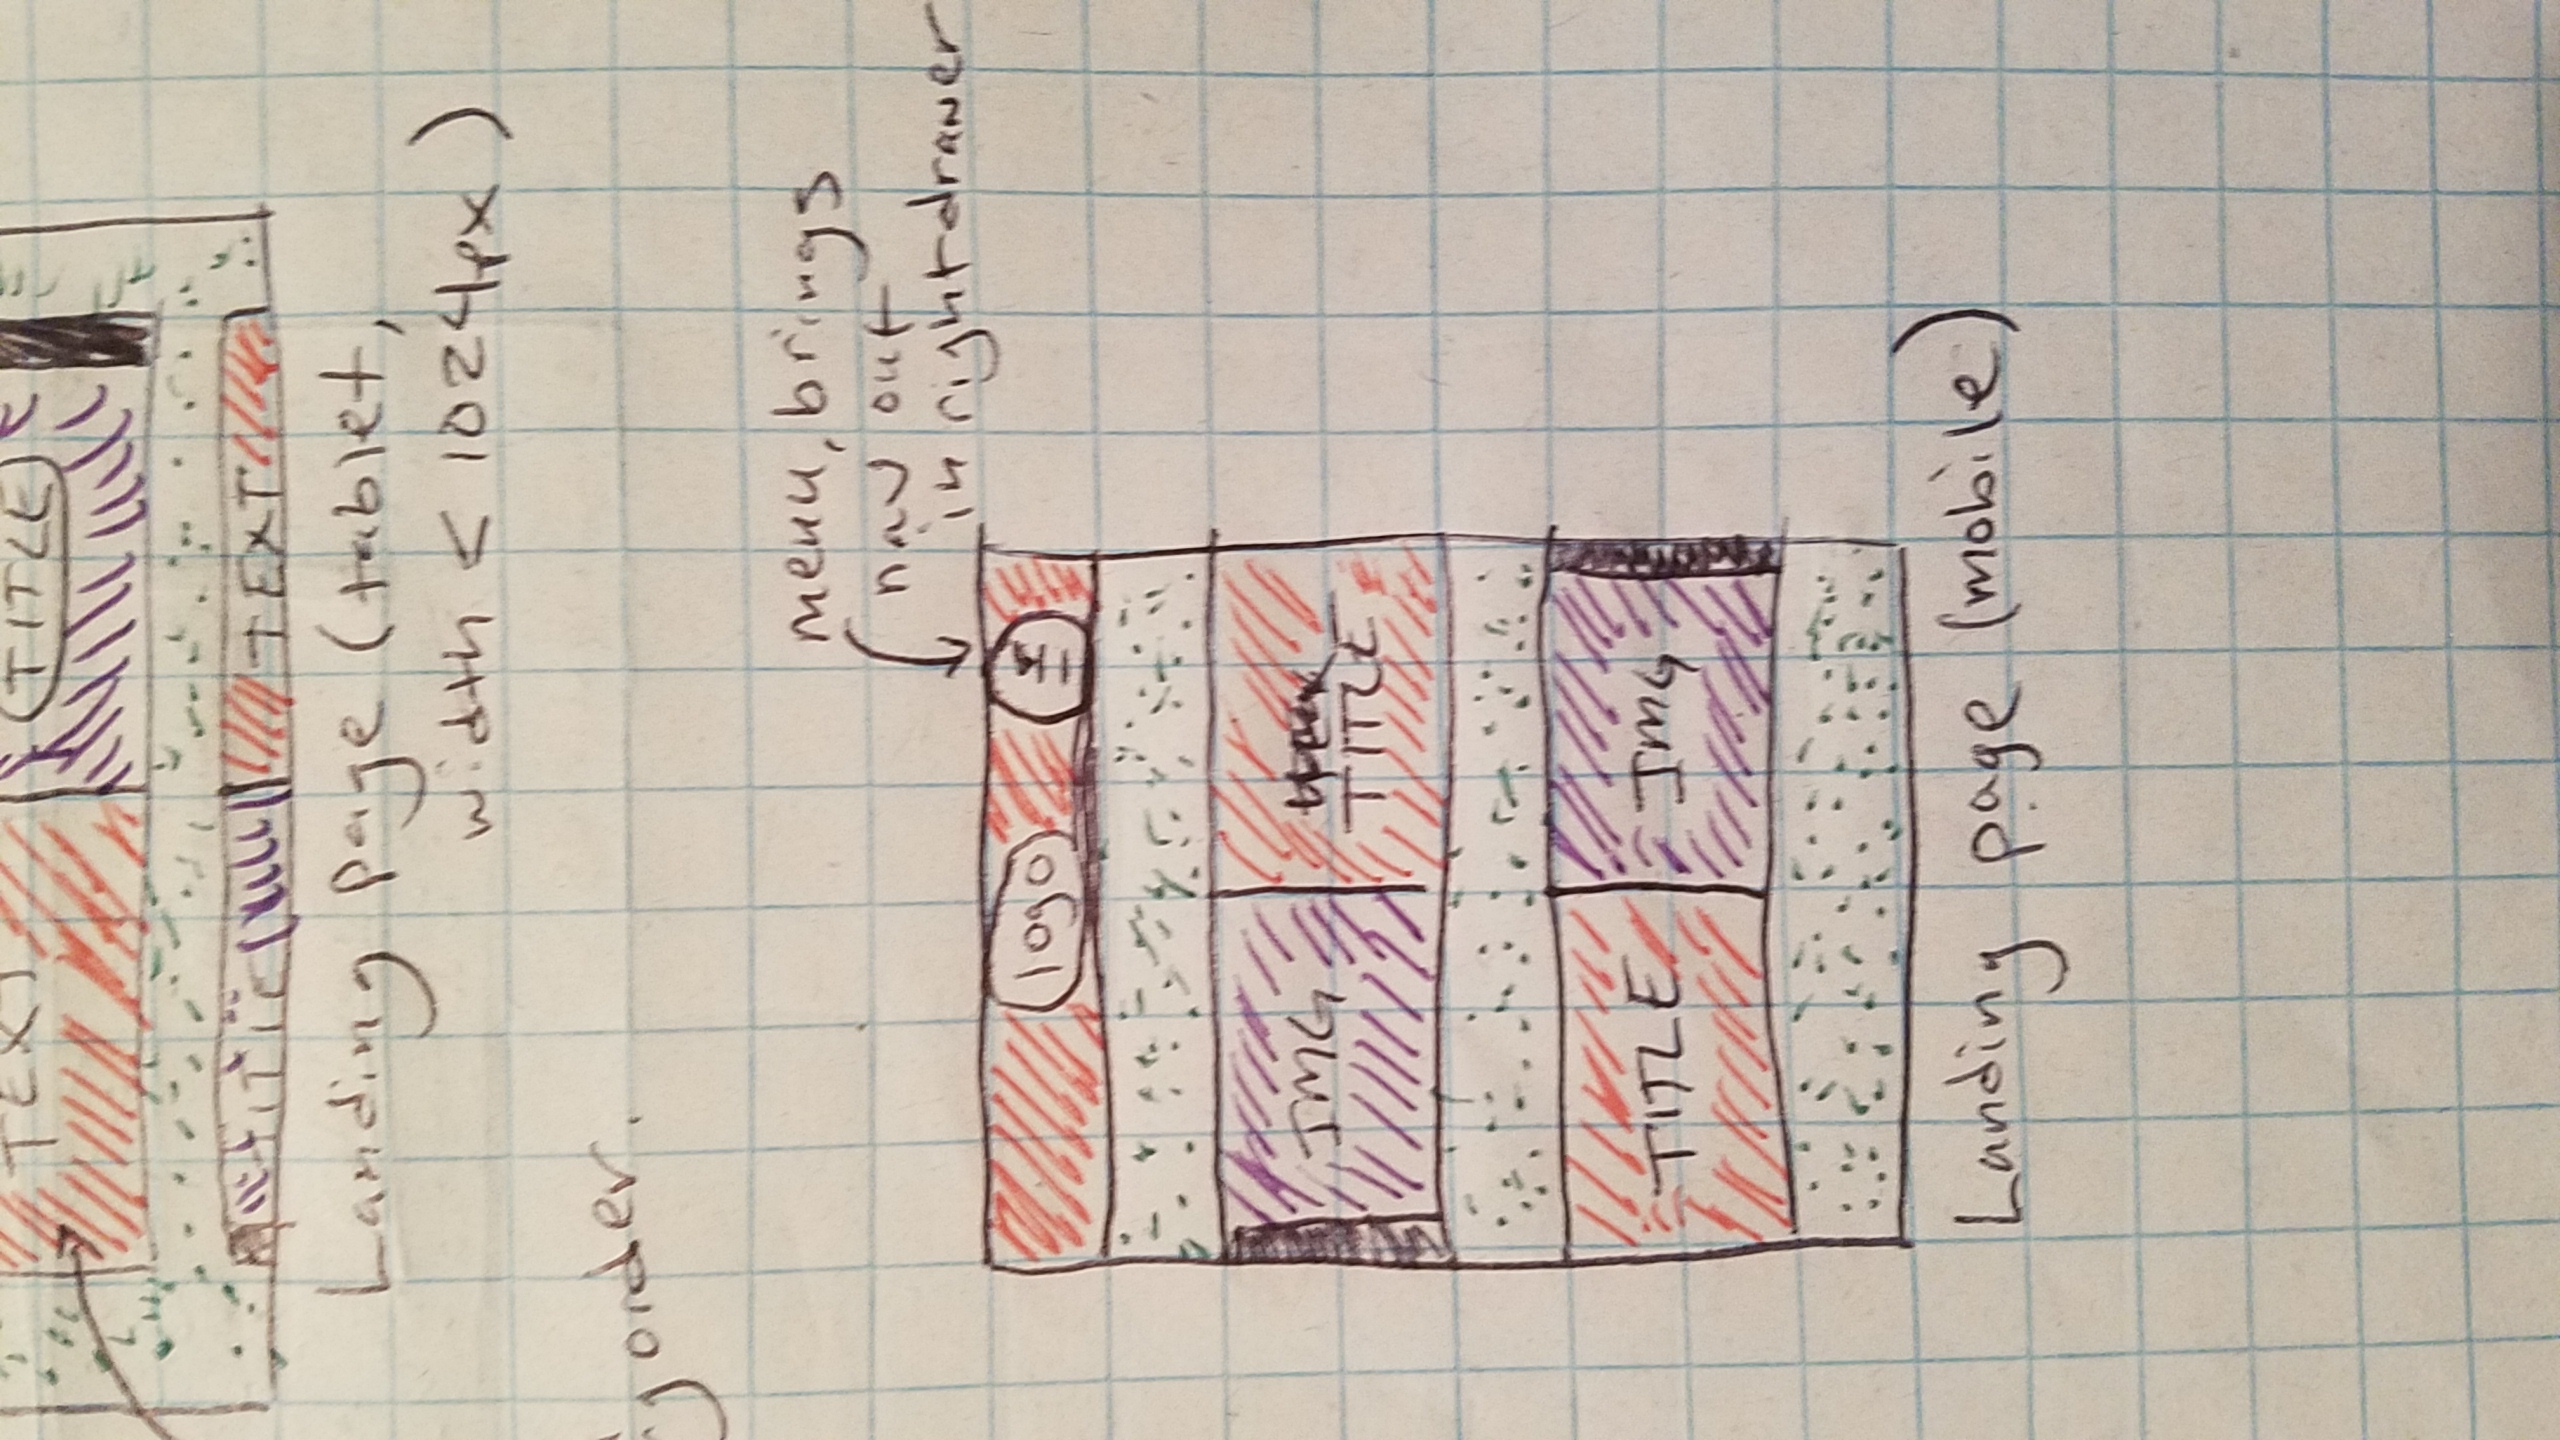 TEXT
TITLE
TITLE
TEXT
Landing page (tablet,
width < 1024px)
order.
menu, brings
nav out
in right drawer
logo
IMG
TITLE
TITLE
IMG
Landing page (mobile)